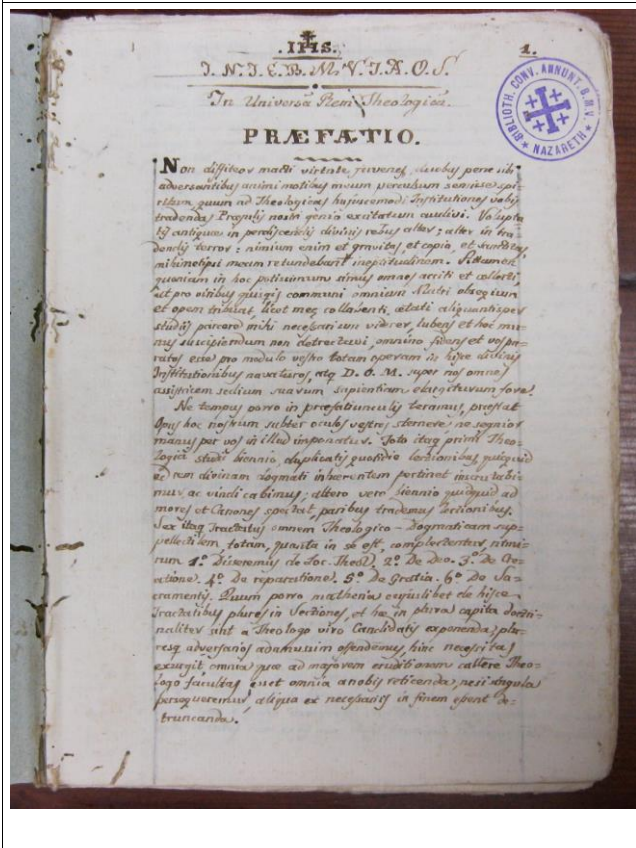 .IHS. 1.
J. N. J. E. B. M. V. J. A. O. S.
In Universã Rem Theologicã.
PRÆFATIO.
BIBLIOTH. CONV. ANNUNT. B.M.V.
NAZARETH
Non diffiteor macti virtute juvenes, duobus pene sibi
adversantibus animi motibus meum perculsum sensisse spi-
ritum quum ad Theologicas hujuscemodi Institutiones vobis
tradendas Præsulis nostri genio excitatum audivi. Volupta-
tis antiquæ in perdiscendis divinis rebus alter; alter in tra-
dendis terror: nimium enim et gravitas et copia, et sanctitas
mihimetipsi meam retundebant ineptitudinem. Attamen
quoniam in hoc potissimum simus omnes acciti et collecti,
ut pro viribus quisquis communi omnium Matri obsequium
et opem tribuat, licet meæ collabenti ætati aliquantisper
studiis parcere mihi necessarium videret, lubens et hoc mu-
nus suscipiendum non detrectavi, omnino fidens et vos pa-
ratos esse pro modulo vestro totam operam in hisce divinis
Institutionibus navaturos, atq D. O. M. super nos omnes
assistricem sedium suarum sapientiam elargiturum fore.
Ne tempus porro in præfatiunculis teramus, præstat
Opus hoc nostrum subter oculos vestros sternere, ne segnior
manus per vos in illud imponatur. Toto itaq primi Theo-
logiæ studii biennio, duplicatis quotidie lectionibus, quicquid
ad rem divinam dogmati inhærentem pertinet inscrutabi-
mur, ac vindicabimus; altero vero biennio quidquid ad
mores et Canones spectat, paribus trademus lectionibus.
Sex itaq Tractatus omnem Theologico-Dogmaticam sup-
pellectilem, totam, quanta in se est, complectentes,
rum 1.º Disseremus de Loc. Theol. 2.º De Deo. 3.º De Cre-
atione. 4.º De reparatione. 5.º De Gratia. 6.º De Sa-
cramentis. Quum porro matheria cujuslibet de hisce
Tractatibus plures in Sectiones, et hæ in plura capita doctri-
naliter sint a Theologo viro Candidatis exponenda, plu-
resq adversarios adamussim offendemus, hinc necessitas
exurgit omnia quæ ad majorem eruditionem callere Theo-
logo facultas esset omnia a nobis reticenda, nisi singula
persequeremur, aliqua ex necessariis in finem essent de-
truncanda.